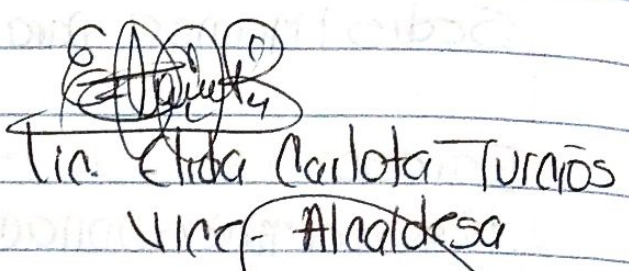 Lic. Elida Carlota Turcios
Vice-Alcaldesa